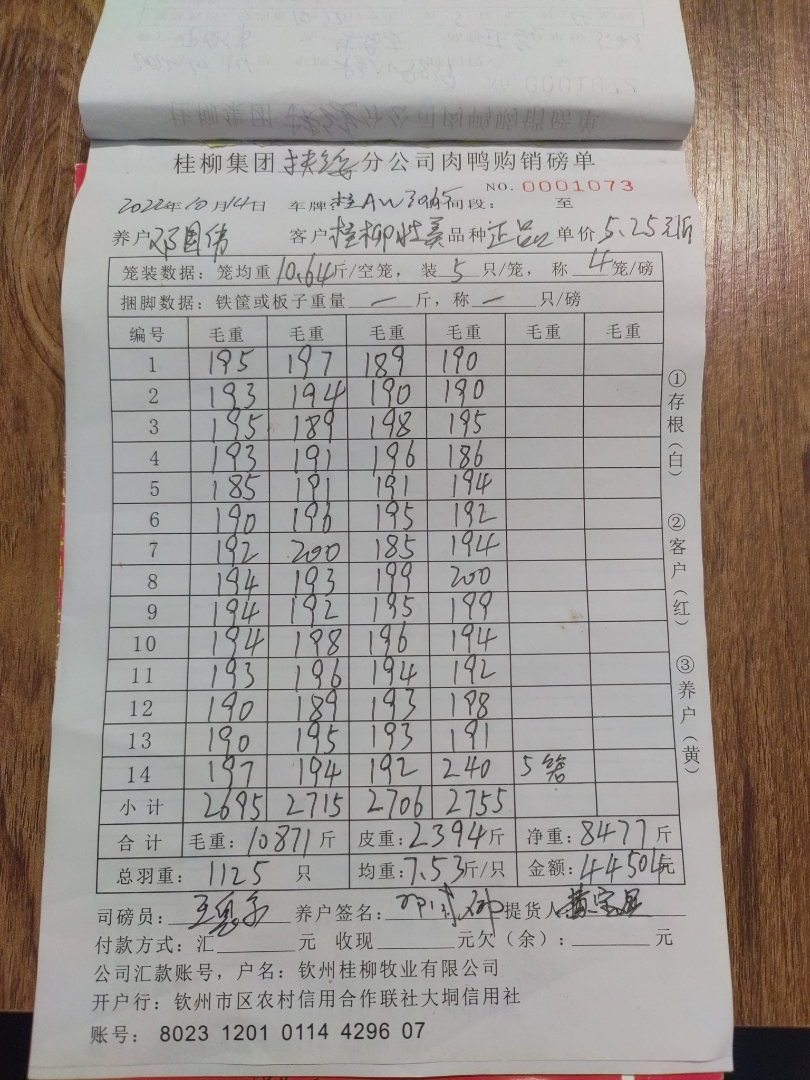 桂柳集团扶绥分公司肉鸭购销磅单
NO. 0001073
2022年10月14日 车牌:桂AW3965 时间段: 至
养户 邓国伟 客户 桂柳牧美 品种 正品 单价 5.25元/斤
笼装数据:笼均重10.64斤/空笼,装5只/笼,称4笼/磅
捆脚数据:铁筐或板子重量 — 斤,称 — 只/磅
编号 毛重 毛重 毛重 毛重 毛重 毛重
1 195 197 189 190
2 193 194 190 190
3 195 189 198 195
4 193 191 196 186
5 185 191 191 194
6 190 196 195 192
7 192 200 185 194
8 194 193 199 200
9 194 192 195 199
10 194 198 196 194
11 193 196 194 192
12 190 189 193 198
13 190 195 193 191
14 197 194 192 240 5笼
小计 2695 2715 2706 2755
合计 毛重:10871斤 皮重:2394斤 净重:8477斤
总羽重:1125 只 均重:7.53斤/只 金额:44504元
司磅员: 养户签名: 提货人
付款方式:汇 元 收现 元欠(余): 元
公司汇款账号,户名:钦州桂柳牧业有限公司
开户行:钦州市区农村信用合作联社大垌信用社
账号: 8023 1201 0114 4296 07
①存根(白)
②客户(红)
③养户(黄)